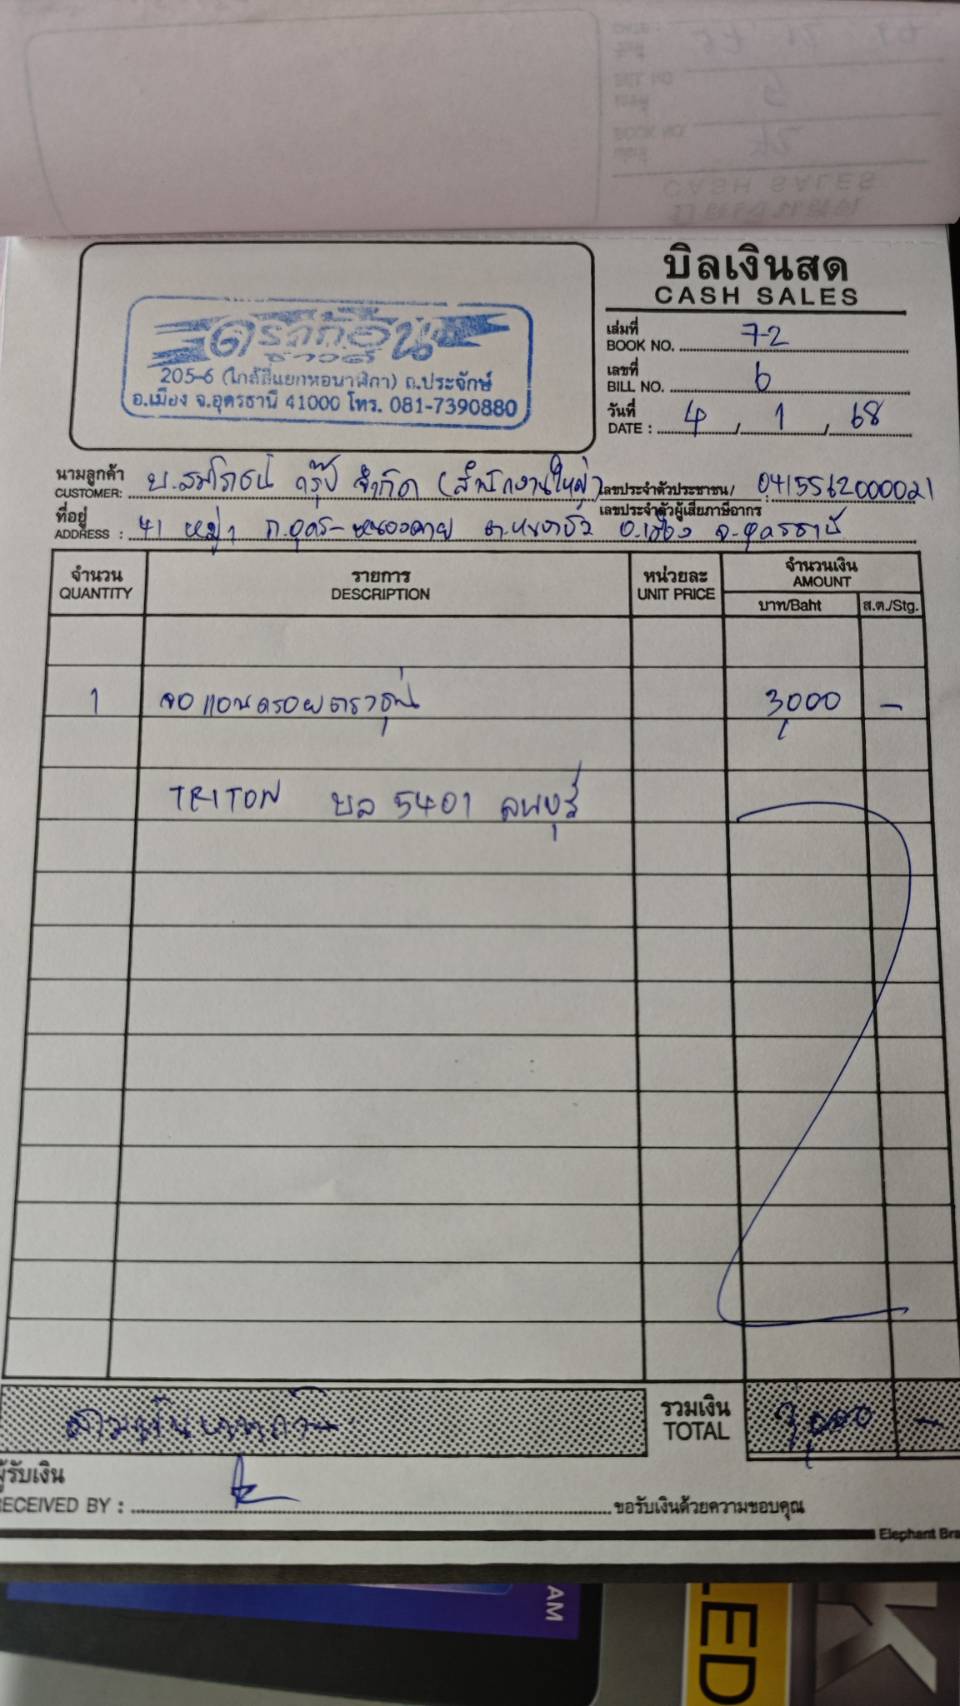 บิลเงินสด
CASH SALES
ดราก้อน
ซาวด์
205-6 (ใกล้สี่แยกหอนาฬิกา) ถ.ประจักษ์
อ.เมือง จ.อุดรธานี 41000 โทร. 081-7390880
เล่มที่
BOOK NO. 72
เลขที่
BILL NO. 6
วันที่
DATE : 4 / 1 / 68
นามลูกค้า
CUSTOMER: บ.สมโภชน์ กรุ๊ป จำกัด (สำนักงานใหญ่)
เลขประจำตัวประชาชน/
เลขประจำตัวผู้เสียภาษีอากร 0415562000021
ที่อยู่
ADDRESS : 41 หมู่ 1 ถ.อุดร-หนองคาย ต.หมากแข้ง อ.เมือง จ.อุดรธานี
จำนวน รายการ หน่วยละ จำนวนเงิน
QUANTITY DESCRIPTION UNIT PRICE AMOUNT
บาท/Baht ส.ต./Stg.
1 จอแอนดรอยตรงรุ่น 3,000 -
TRITON บล 5401 ลพบุรี
สามพันบาทถ้วน
รวมเงิน
TOTAL 3,000 -
ผู้รับเงิน
RECEIVED BY : ขอรับเงินด้วยความขอบคุณ
Elephant Bra
AM
LED
K